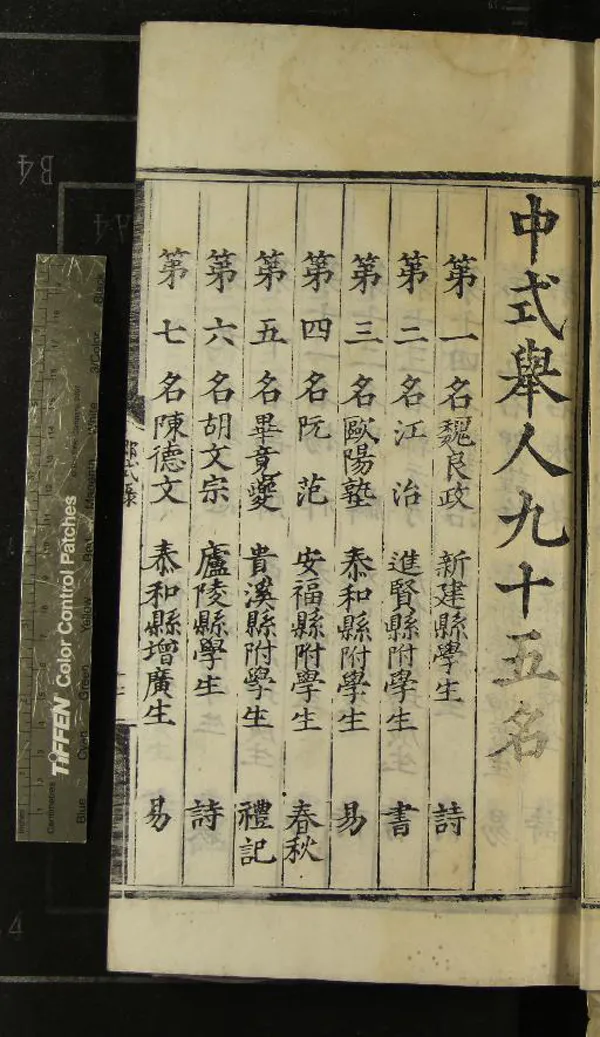 中式舉人九十五名
第一名魏良政 新建縣學生 詩
第二名江治 進賢縣附學生 書
第三名歐陽塾 泰和縣附學生 易
第四名阮范 安福縣附學生 春秋
第五名畢竟夔 貴溪縣附學生 禮記
第六名胡文宗 廬陵縣學生 詩
第七名陳德文 泰和縣增廣生 易
B4
A4
4
TIFFEN Color Control Patches
Centimetres
Blue
Green
Yellow
Red
Magenta
White
3/Color
Black